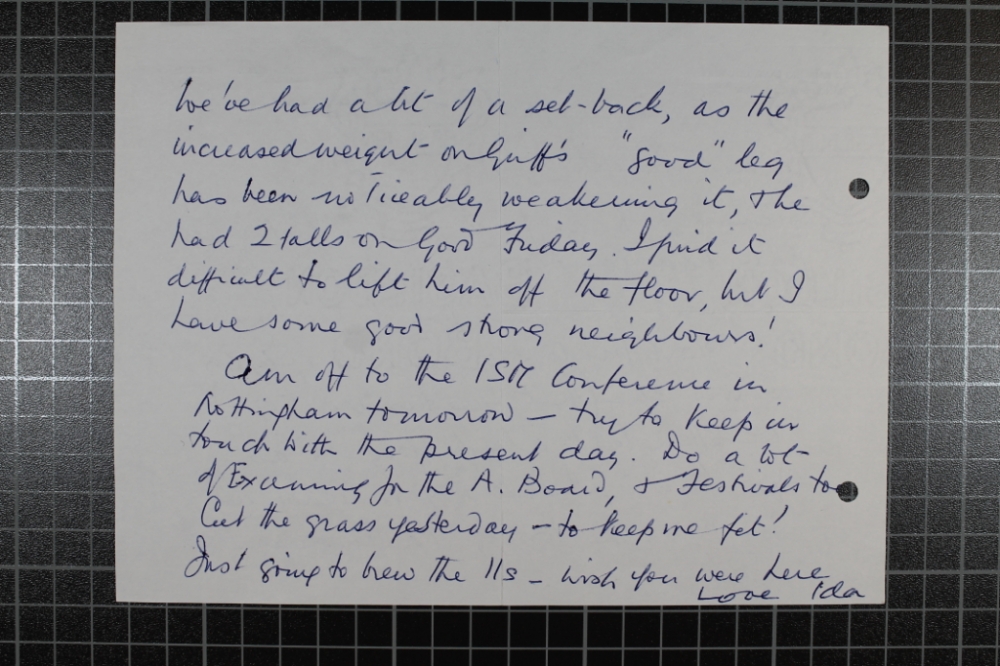 We've had a bit of a set-back, as the
increased weight on Griff's "good" leg
has been noticeably weakening it, & he
had 2 falls on Good Friday. I find it
difficult to lift him off the floor, but I
have some good strong neighbours!
Am off to the ISM Conference in
Nottingham tomorrow – try to keep in
touch with the present day. Do a lot
of Examining for the A. Board, & Festivals too
Cut the grass yesterday – to keep me fit!
Just going to brew the 11s – wish you were here
Love Ida